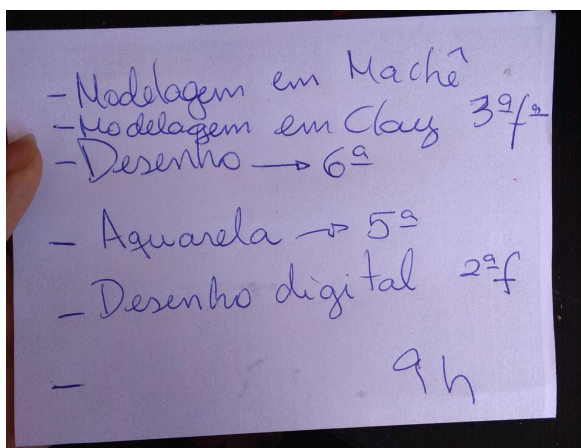 - Modelagem em Machê
- Modelagem em Clay 3ªfª
- Desenho → 6ª
- Aquarela → 5ª
- Desenho digital 2ªf
- 9h